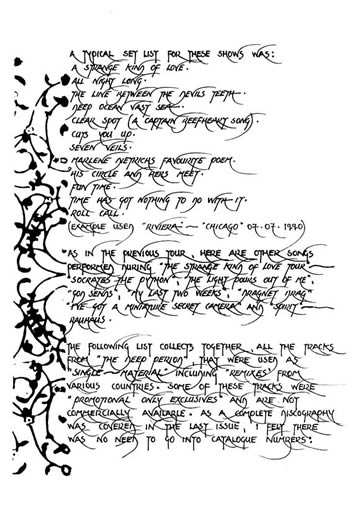 A TYPICAL SET LIST FOR THESE SHOWS WAS:
A STRANGE KIND OF LOVE.
ALL NIGHT LONG.
THE LINE BETWEEN THE DEVILS TEETH.
DEEP OCEAN VAST SEA.
CLEAR SPOT (A CAPTAIN BEEFHEART SONG).
CUTS YOU UP.
SEVEN VEILS.
MARLENE DIETRICHS FAVOURITE POEM.
HIS CIRCLE AND HERS MEET.
FUN TIME.
TIME HAS GOT NOTHING TO DO WITH IT.
ROLL CALL.
(EXAMPLE USED "RIVIERA" - "CHICAGO" 07.07.1990)
AS IN THE PREVIOUS TOUR, HERE ARE OTHER SONGS
PERFORMED DURING "THE STRANGE KIND OF LOVE TOUR"
"SOCRATES THE PYTHON", "THE LIGHT POURS OUT OF ME",
"GOD SENDS", "MY LAST TWO WEEKS", "DRAGNET DRAG"
"I'VE GOT A MINIATURE SECRET CAMERA" AND "SPIRIT" -
BAUHAUS.
THE FOLLOWING LIST COLLECTS TOGETHER, ALL THE TRACKS
FROM "THE DEEP PERIOD", THAT WERE USED AS
"SINGLE - MATERIAL" INCLUDING "REMIXES" FROM
VARIOUS COUNTRIES. SOME OF THESE TRACKS WERE
"PROMOTIONAL ONLY EXCLUSIVES" AND ARE NOT
COMMERCIALLY AVAILABLE. AS A COMPLETE DISCOGRAPHY
WAS COVERED IN THE LAST ISSUE, I FELT THERE
WAS NO NEED TO GO INTO CATALOGUE NUMBERS: